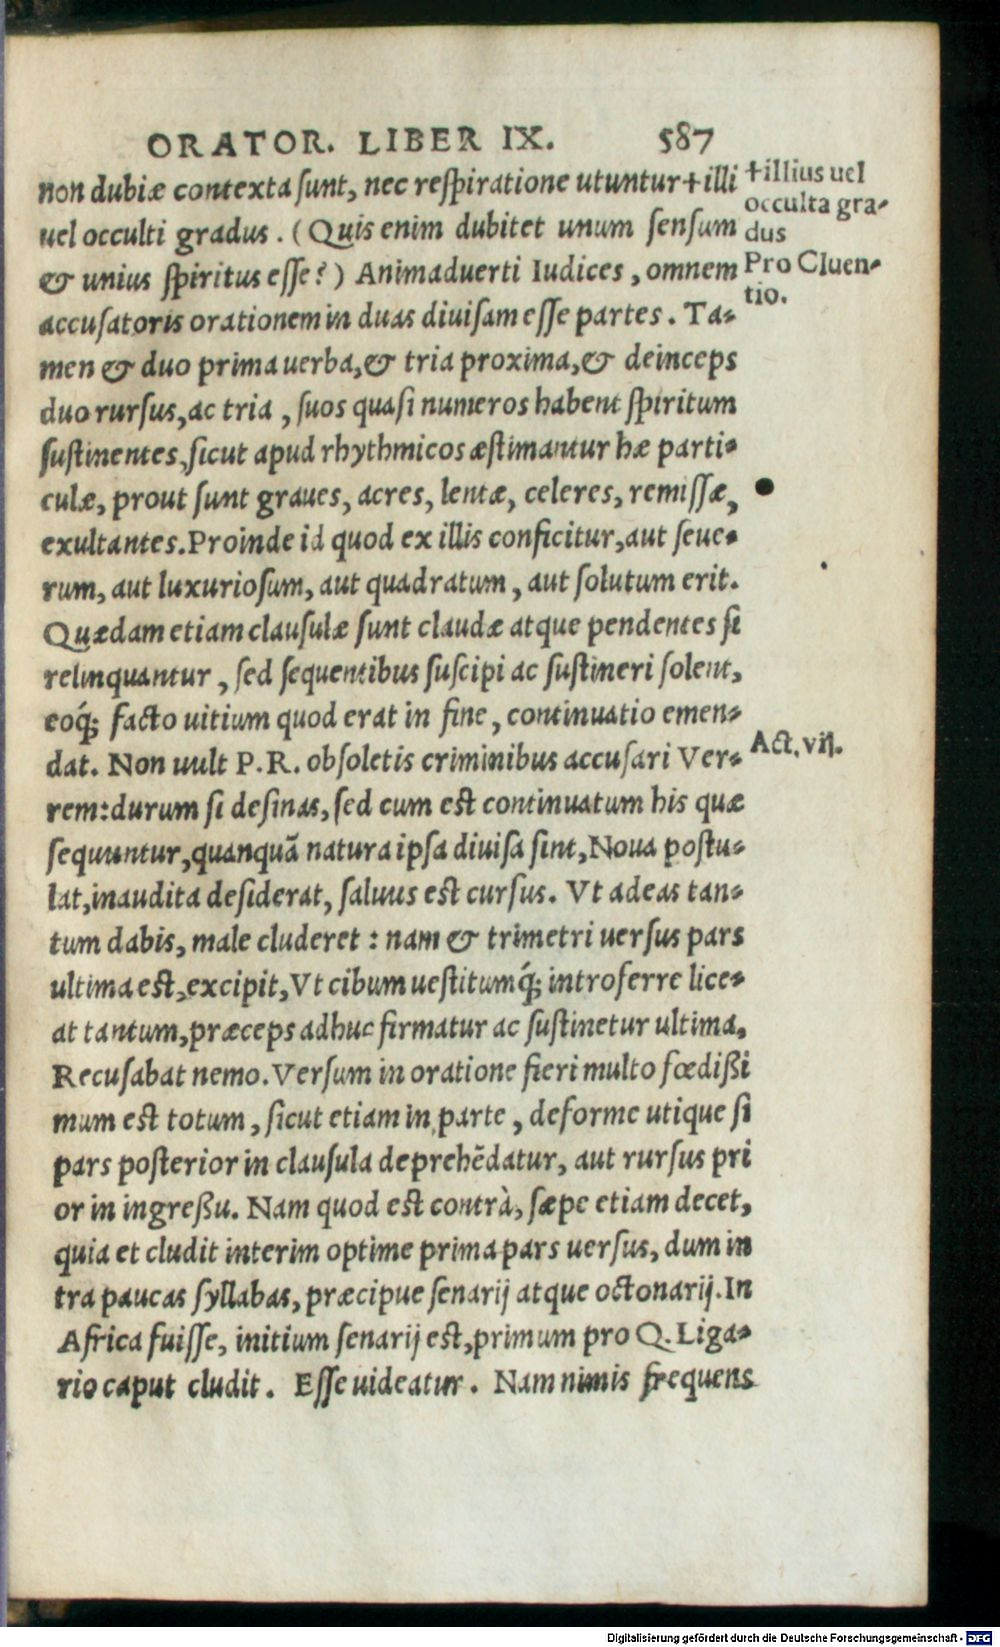 ORATOR. LIBER IX. 587
non dubiæ contexta sunt, nec respiratione utuntur+illi
uel occulti gradus. (Quis enim dubitet unum sensum
& unius spiritus esse?) Animaduerti Iudices, omnem
accusatoris orationem in duas diuisam esse partes. Ta-
men & duo prima uerba,& tria proxima,& deinceps
duo rursus,ac tria, suos quasi numeros habent spiritum
sustinentes,sicut apud rhythmicos æstimantur hæ parti-
culæ, prout sunt graues, acres, lentæ, celeres, remissæ,
exultantes.Proinde id quod ex illis conficitur,aut seue-
rum, aut luxuriosum, aut quadratum, aut solutum erit.
Quædam etiam clausulæ sunt claudæ atque pendentes si
relinquantur, sed sequentibus suscipi ac sustineri solent,
eoq́; facto uitium quod erat in fine, continuatio emen-
dat. Non uult P.R. obsoletis criminibus accusari Ver-
rem:durum si desinas, sed cum est continuatum his quæ
sequuntur,quanquā natura ipsa diuisa sint, Noua postu-
lat,inaudita desiderat, saluus est cursus. Vt adeas tan-
tum dabis, male cluderet : nam & trimetri uersus pars
ultima est,excipit,Vt cibum uestitumq́; introferre lice-
at tantum,præceps adhuc firmatur ac sustinetur ultima,
Recusabat nemo.Versum in oratione fieri multo fœdißi
mum est totum, sicut etiam in parte, deforme utique si
pars posterior in clausula deprehēdatur, aut rursus pri
or in ingreßu. Nam quod est contrà, sæpe etiam decet,
quia et cludit interim optime prima pars uersus, dum in
tra paucas syllabas, præcipue senarij atque octonarij.In
Africa fuisse, initium senarij est,primum pro Q. Liga-
rio caput cludit. Esse uideatur. Nam nimis frequens
+illius uel
occulta gra-
dus
Pro Cluen-
tio.
Act. vij.
Digitalisierung gefördert durch die Deutsche Forschungsgemeinschaft - DFG